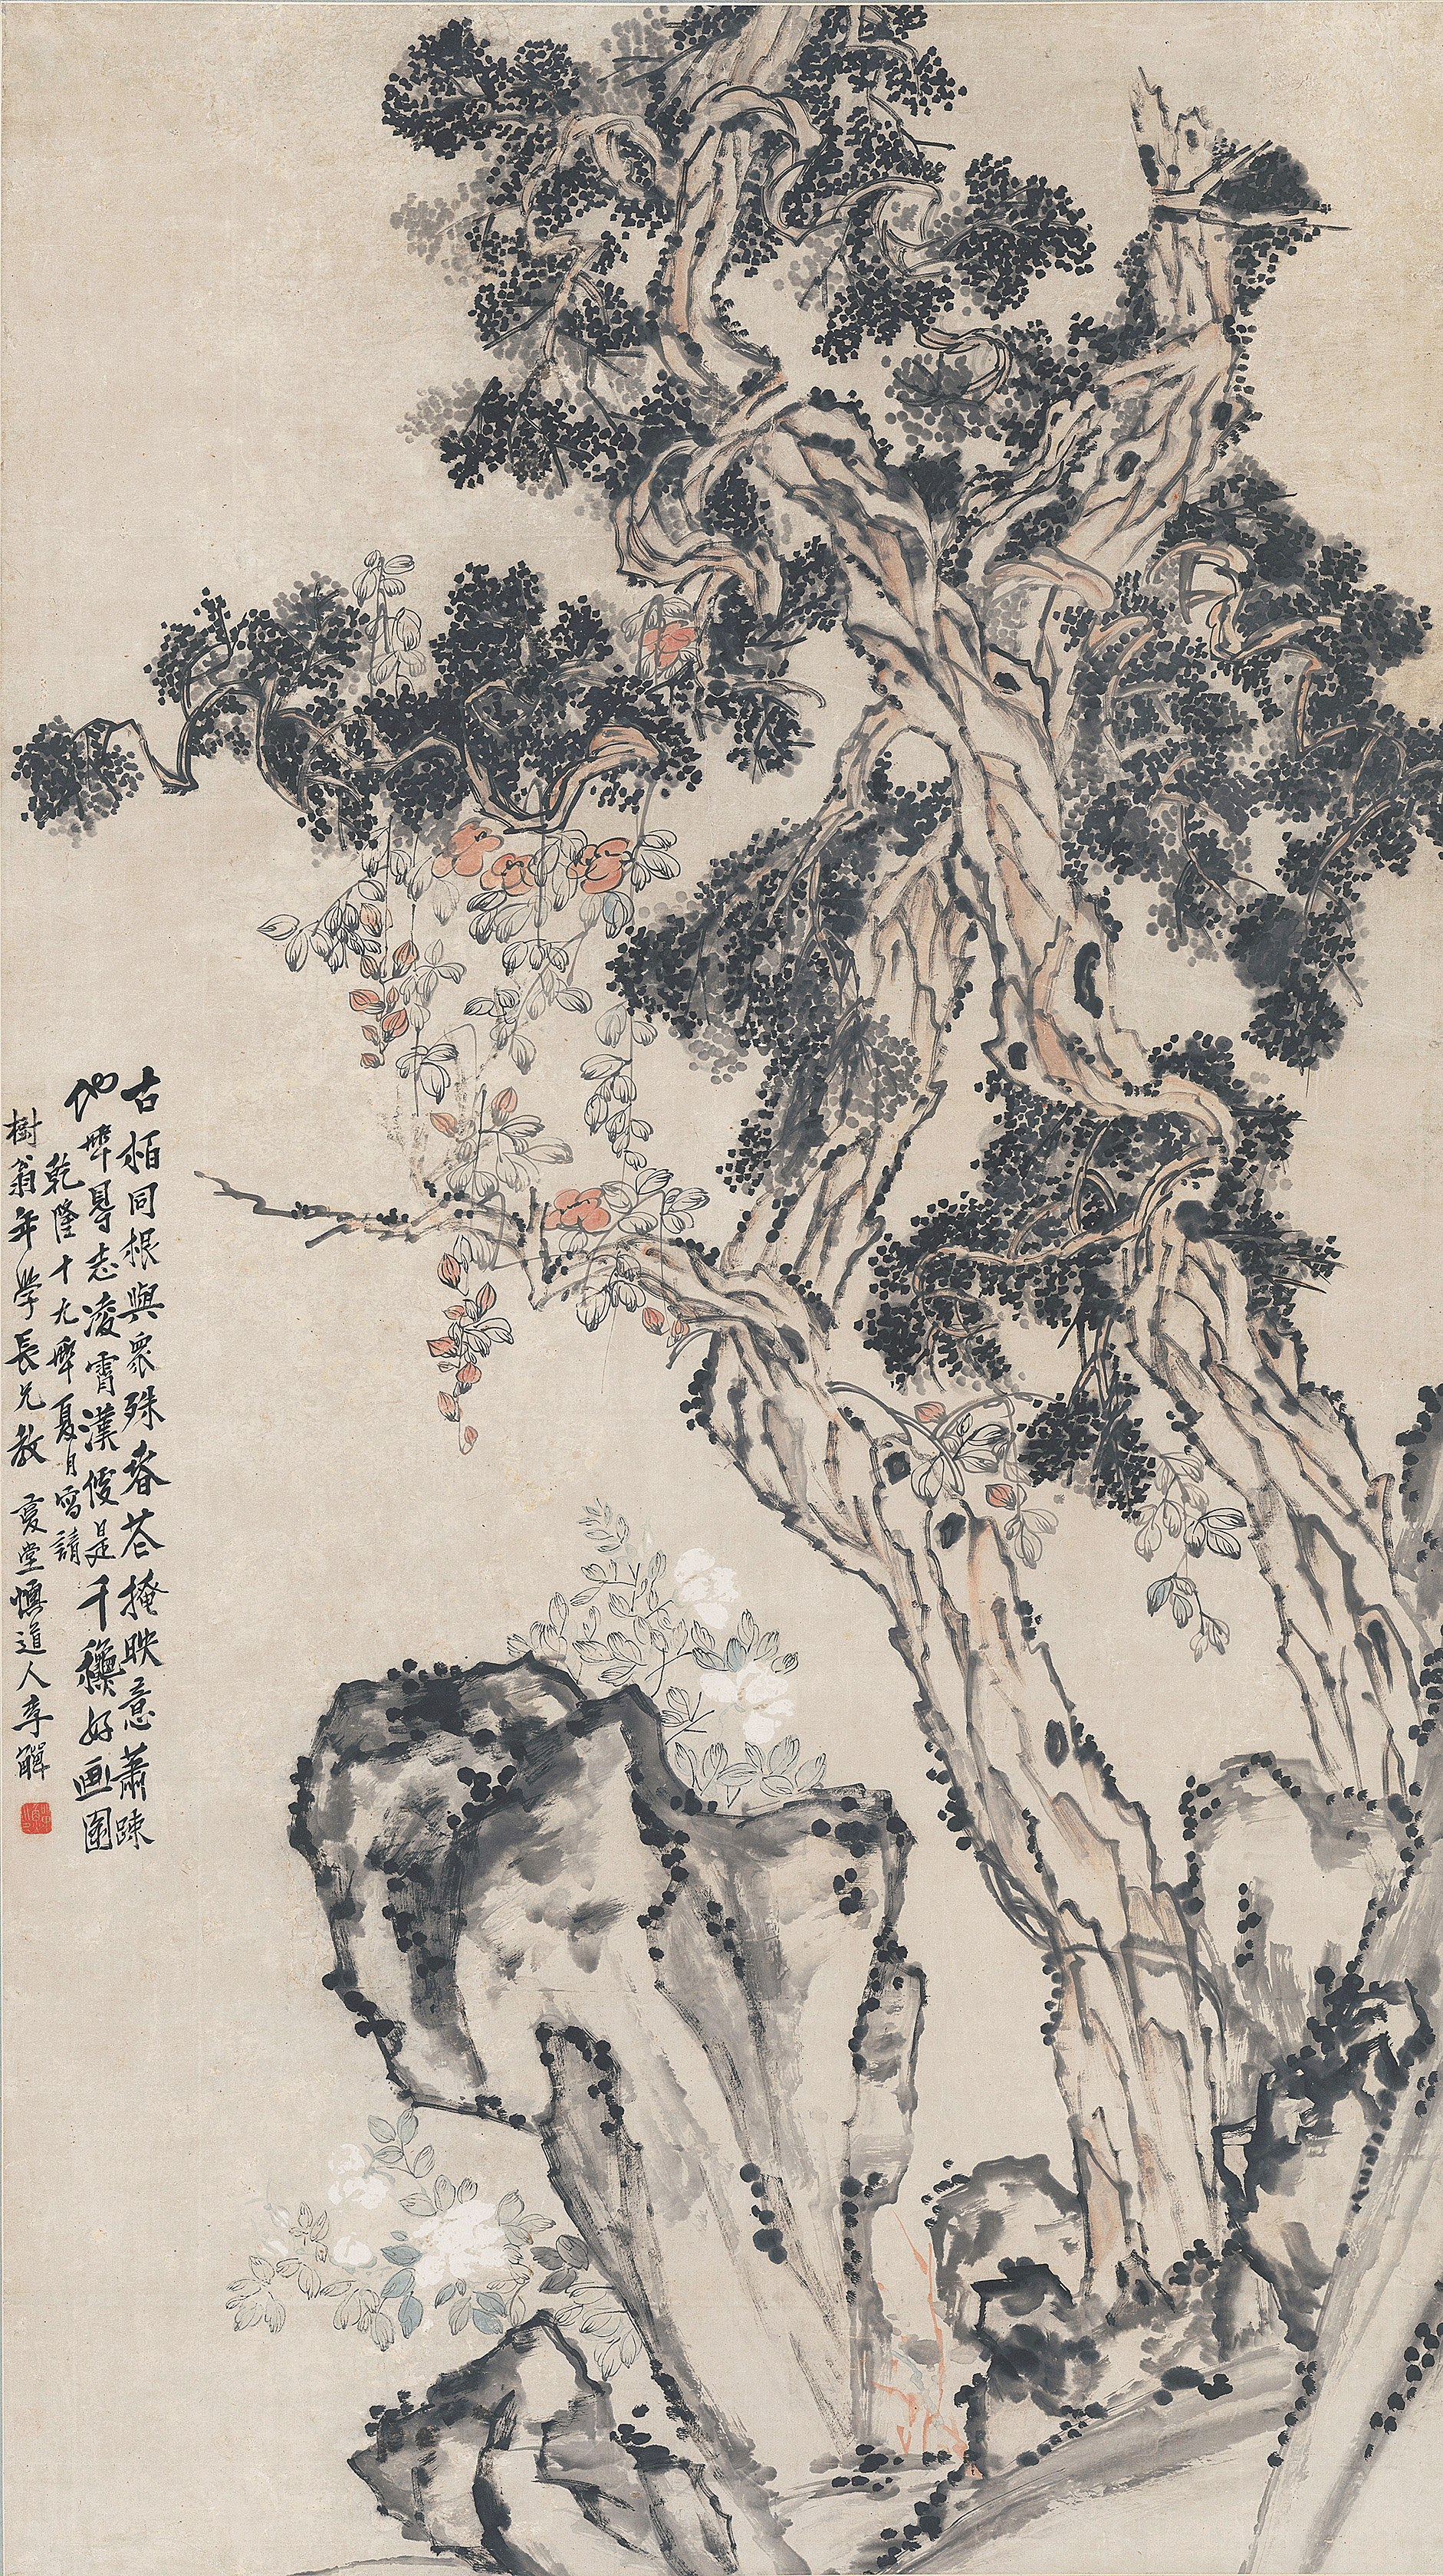 古栢同根與衆殊春花掩映意蕭踈
他年得志凌霄漢便是千穐好画圖
乾隆十九年夏日寫請
樹翁年學長兄教 復堂懊道人李觶